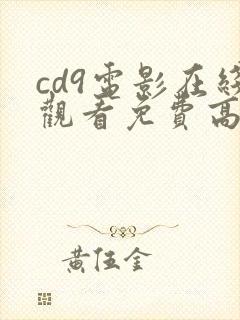 cd9電影在線
觀看免費高
黃伍金